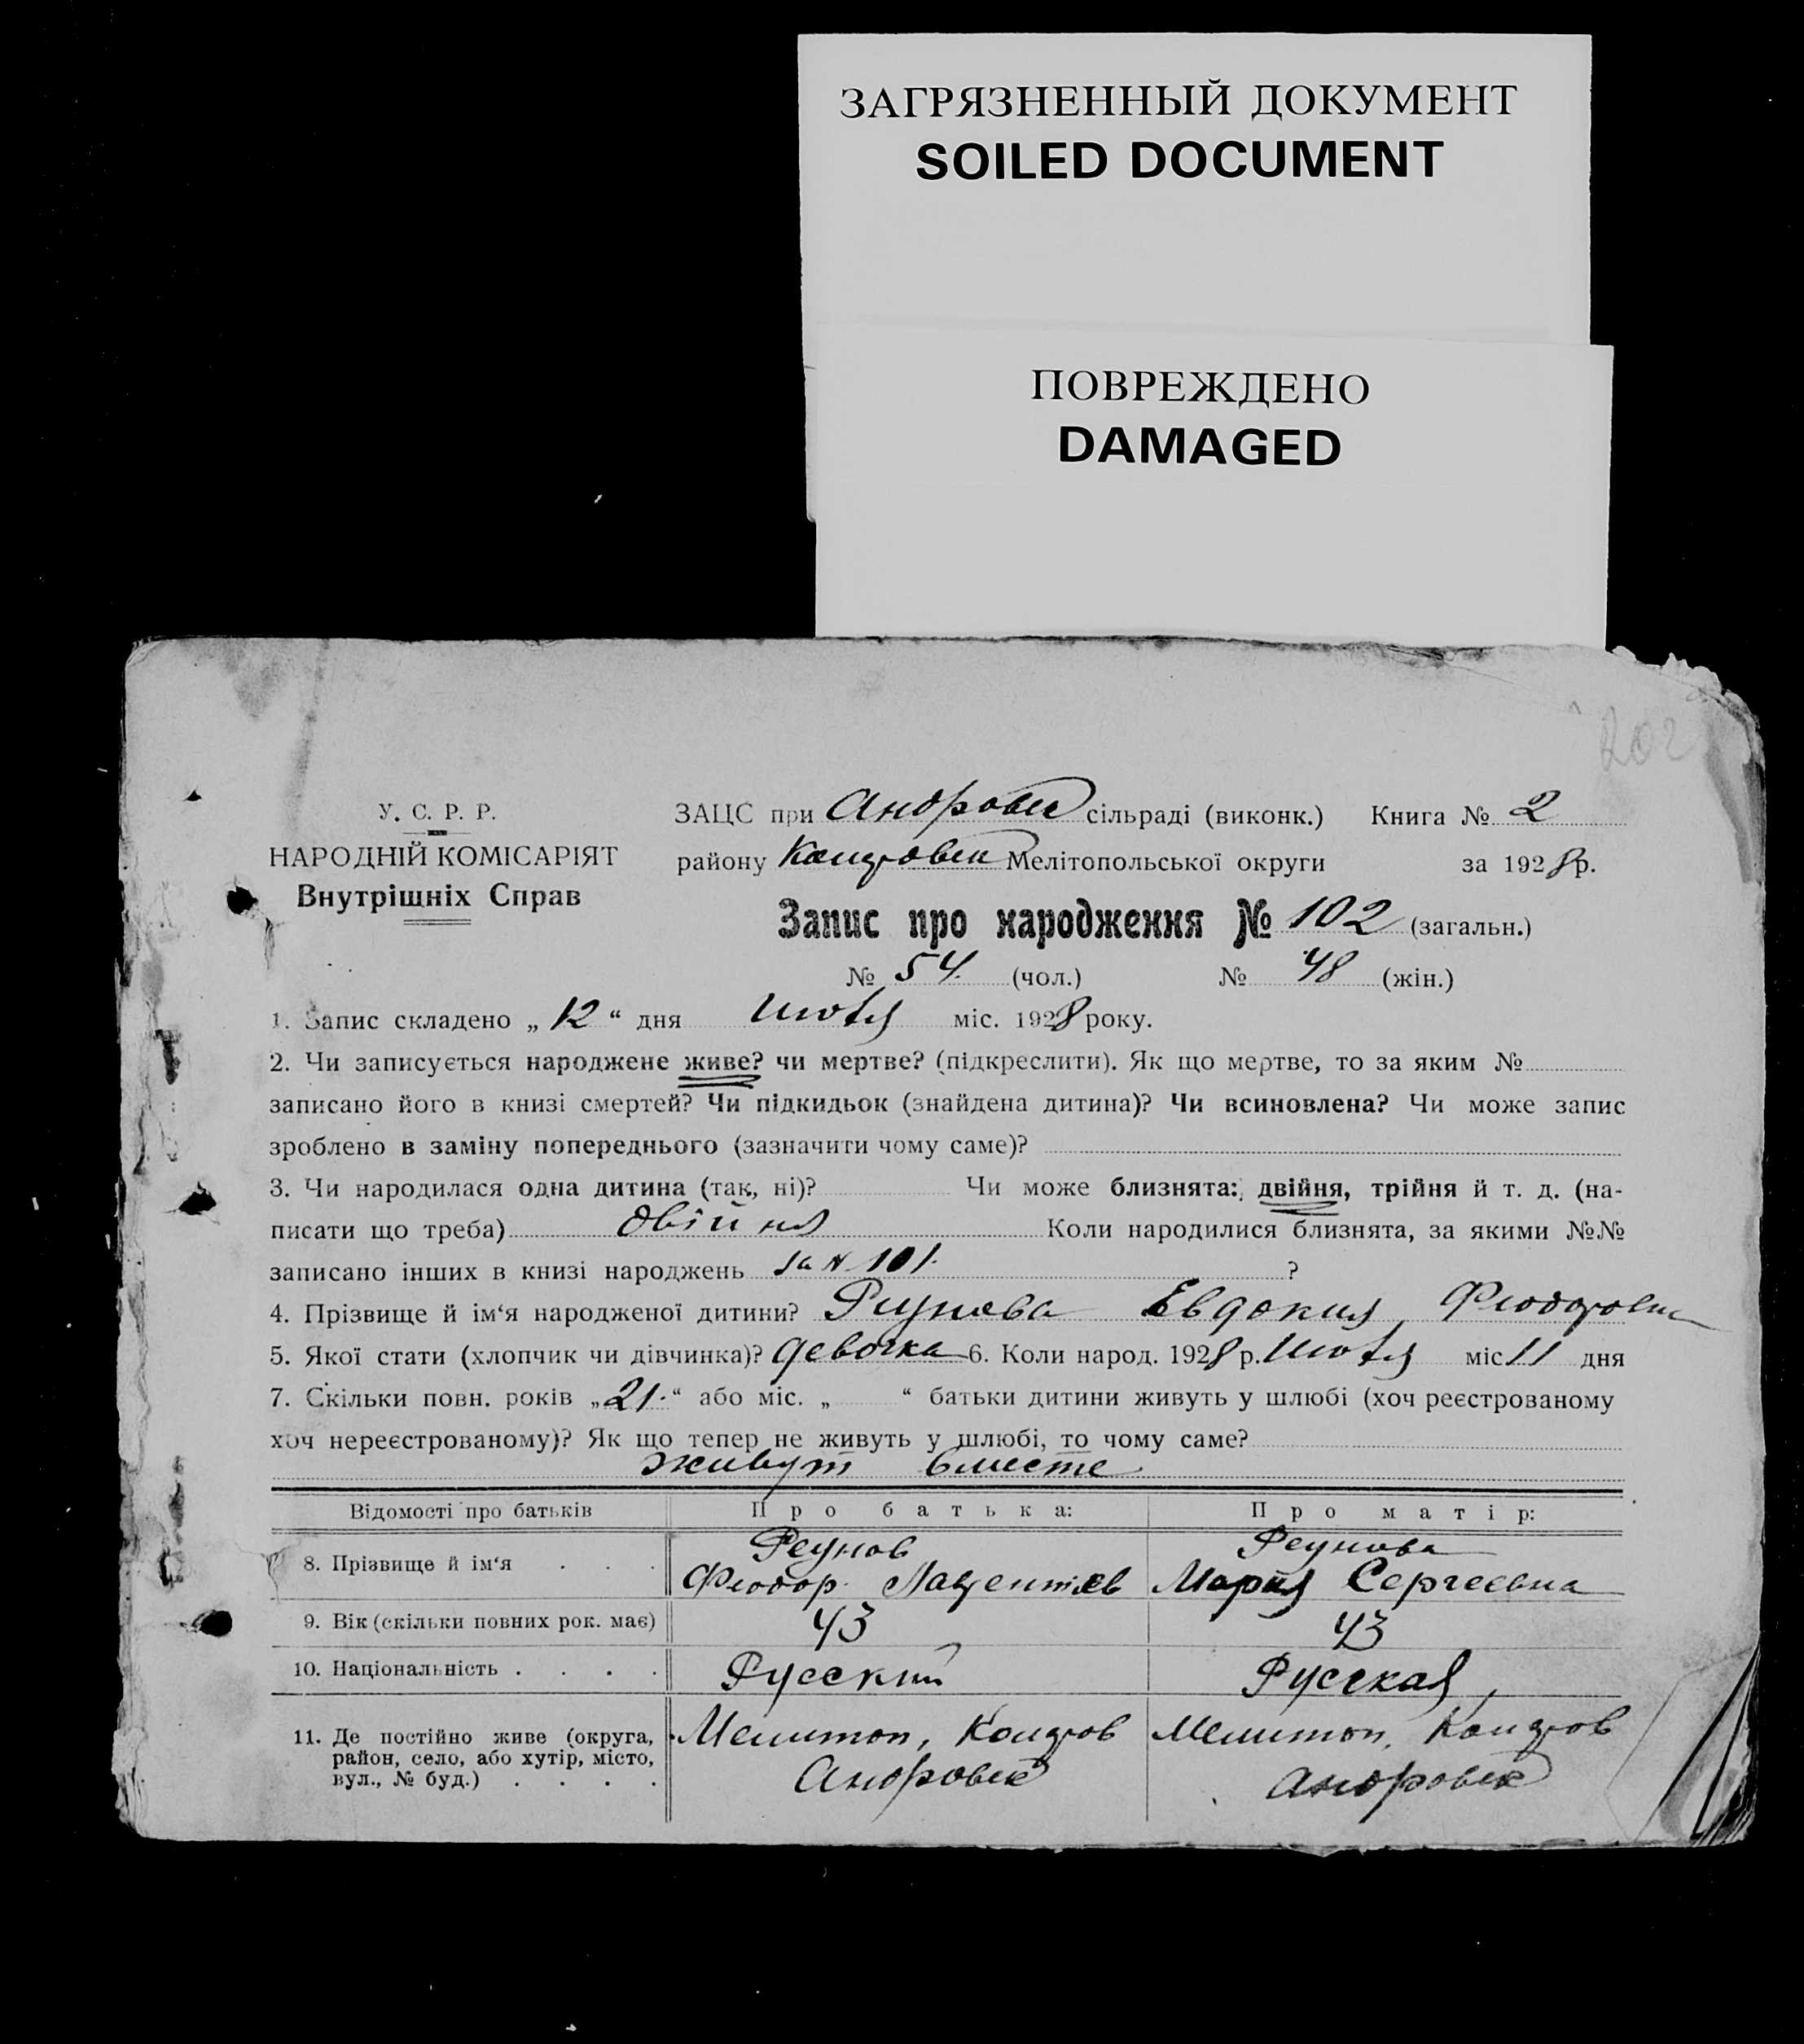 ЗАГРЯЗНЕННЫЙ ДОКУМЕНТ
SOILED DOCUMENT
ПОВРЕЖДЕНО
DAMAGED
202
У. С. Р. Р.
НАРОДНІЙ КОМІСАРІЯТ
Внутрішніх Справ
ЗАЦС при Андровс сільраді (виконк.) Книга № 2
району Мелітопольської округи за 1928 р.
Запис про народження № 102 (загальн.)
№ 54 (чол.) № 48 (жін.)
1. Запис складено „ 12 “ дня Июля міс. 1928 року.
2. Чи записується народжене живе? чи мертве? (підкреслити). Як що мертве, то за яким №
записано його в книзі смертей? Чи підкидьок (знайдена дитина)? Чи всиновлена? Чи може запис
зроблено в заміну попереднього (зазначити чому саме)?
3. Чи народилася одна дитина (так, ні)? Чи може близнята: двійня, трійня й т. д. (на-
писати що треба) двійня Коли народилися близнята, за якими №№
записано інших в книзі народжень за № 101. ?
4. Прізвище й ім‘я народженої дитини? Реунова Евдокия Феодоровн
5. Якої стати (хлопчик чи дівчинка)? девочка 6. Коли народ. 1928 р. Июля міс 11 дня
7. Скільки повн. років „ 21. “ або міс. „ “ батьки дитини живуть у шлюбі (хоч реєстрованому
хоч нереєстрованому)? Як що тепер не живуть у шлюбі, то чому саме?
живут вместе
Відомості про батьків Про батька: Про матір:
8. Прізвище й ім‘я . . . Реунов Феодор Лаврентиев Реунова Мария Сергеевна
9. Вік (скільки повних рок. має) 43 43
10. Національність . . . . Русский Русская
11. Де постійно живе (округа, Мелитоп, Мелитоп,
район, село, або хутір, місто, Андровк Андровк
вул., № буд.) . . . .